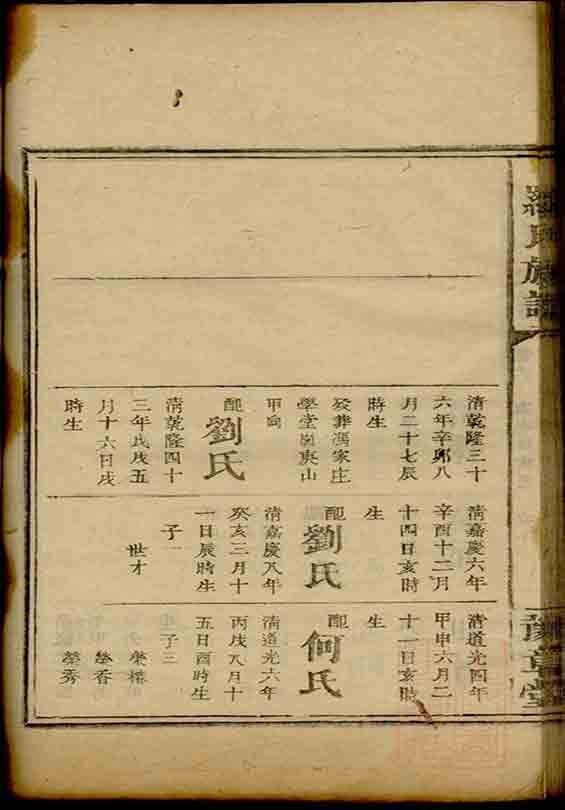 羅氏族譜
豫章堂
清乾隆三十
六年辛卯八
月二十七辰
時生
歿葬馮家庄
學堂崗庚山
甲向
配
劉氏
清乾隆四十
三年戊戌五
月十六日戌
時生
清嘉慶六年
辛酉十二月
十四日亥時
生
配
劉氏
清嘉慶八年
癸亥三月十
一日辰時生
子一
世才
清道光四年
甲申六月二
十一日亥時
生
配
何氏
清道光六年
丙戌八月十
五日酉時生
子三
榮香
榮秀